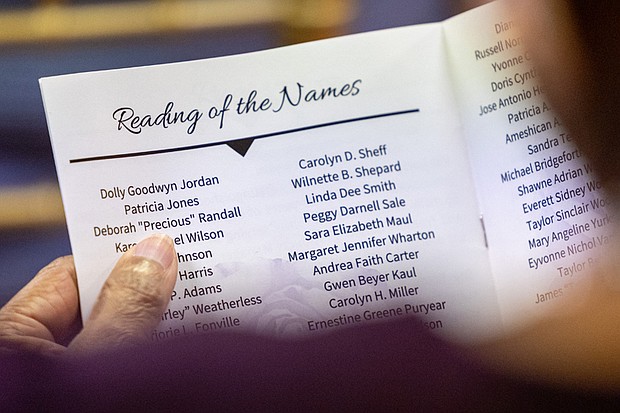 Reading of the Names
Dolly Goodwyn Jordan
Patricia Jones
Deborah "Precious" Randall
Wilson
Harris
P. Adams
Weatherless
L. Fonville
Carolyn D. Sheff
Wilnette B. Shepard
Linda Dee Smith
Peggy Darnell Sale
Sara Elizabeth Maul
Margaret Jennifer Wharton
Andrea Faith Carter
Gwen Beyer Kaul
Carolyn H. Miller
Ernestine Greene Puryear
Russell
Yvonne
Doris
Jose Antonio
Patricia
Ameshican
Sandra
Michael Bridgeforth
Shawne Adrian
Everett Sidney
Taylor Sinclair
Mary Angeline
Eyvonne Nichol
Taylor
James